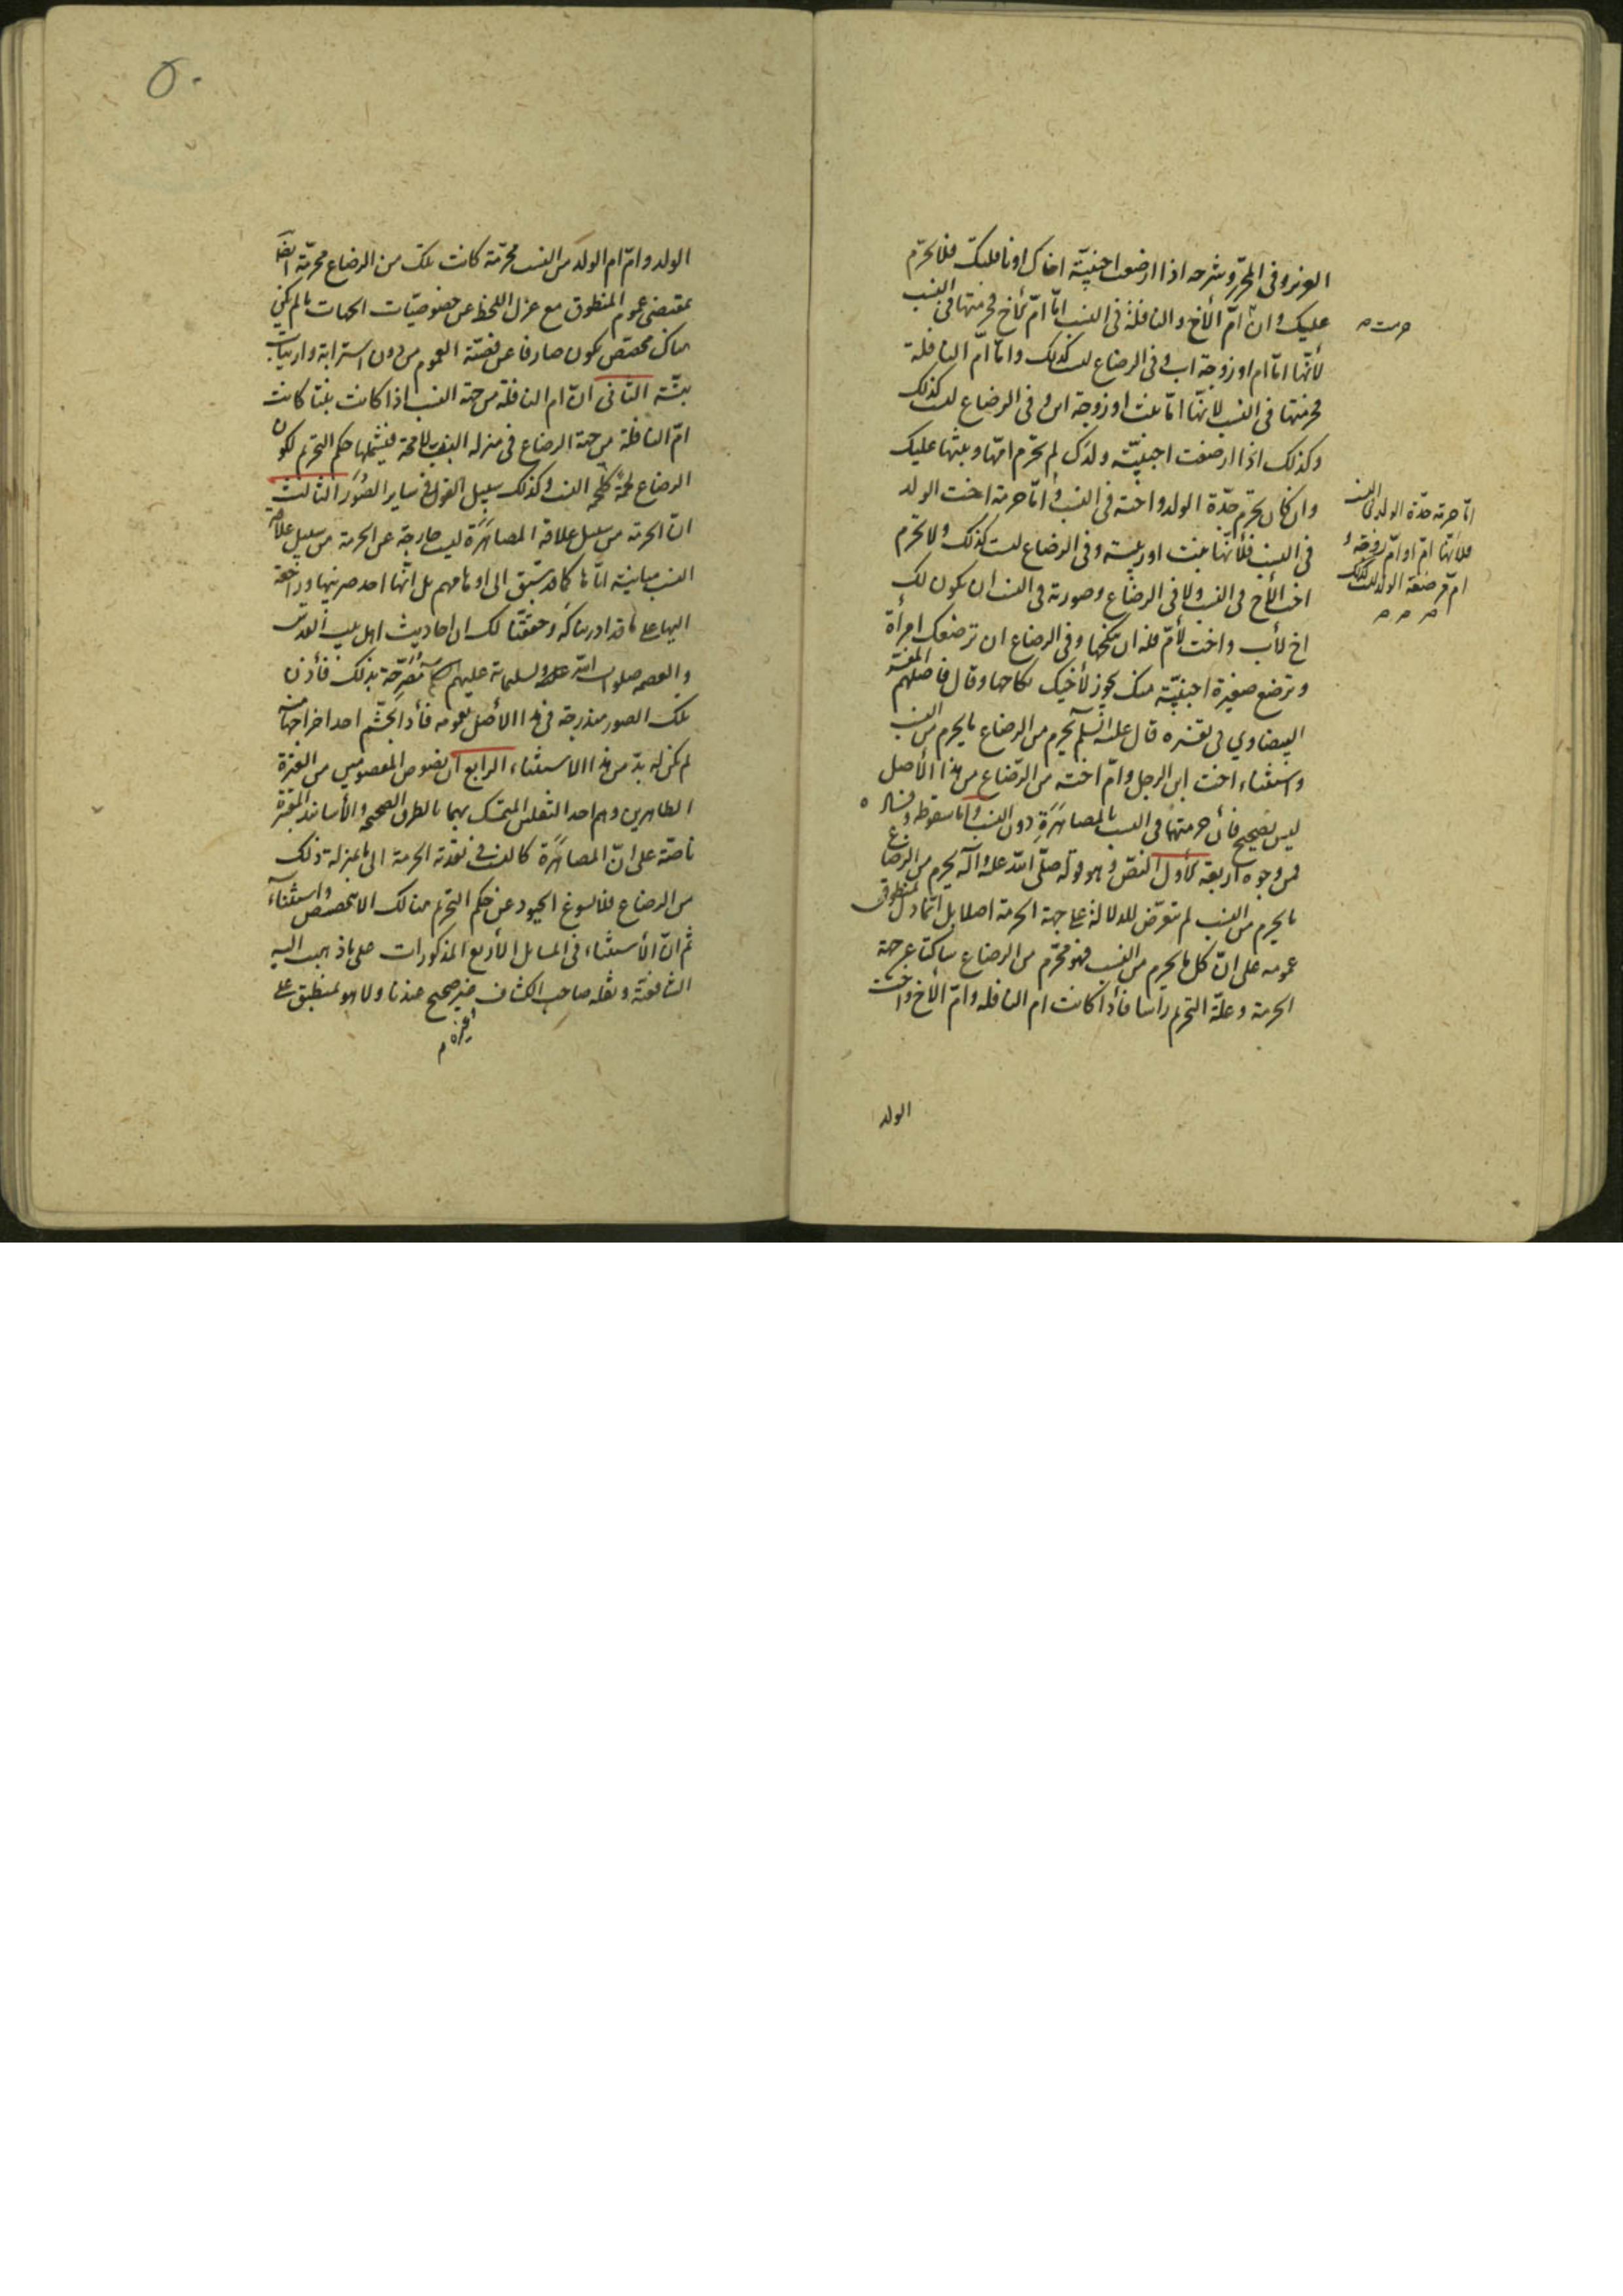 العزيز وفى المحرّر وشرحه اذا ارضعت اجنبيّة اخاك او نافلتك فلا تحرّم
عليك وان حرمت امّ الأخ والنافلة فى النسب امّا امّ الأخ فحرمتها فى النسب
لأنّها امّا ام او زوجة اب وفى الرضاع ليست كذلك وامّا امّ النافلة
فحرمتها فى النسب لانّها امّا بنت او زوجة ابن وفى الرضاع ليست كذلك
وكذلك اذا ارضعت اجنبيّة ولدك لم تحرّم امّها وبنتها عليك
وان كان تحرّم جدّة الولد واخته فى النسب وامّا حرمة اخت الولد
فى النسب فلأنّها بنت او ربيبة وفى الرضاع ليست كذلك ولا تحرّم
اخت الأخ فى النسب ولا فى الرضاع وصورته فى النسب ان يكون لك
اخ لأب واخت لأمّ فله ان ينكحها وفى الرضاع ان ترضعك امرأة
وترضع صغيرة اجنبيّة منك يجوز لأخيك نكاحها وقال فاضلهم المفسّر
البيضاوي فى تفسيره قال عليه السّلم يحرم من الرضاع ما يحرم من النسب
واستثناء اخت ابن الرجل وامّ اخته من الرّضاع من هذا الأصل
ليس بصحيح فأنّ حرمتها فى النسب بالمصاهَرَةِ دون النسب وامّا سقوطه وفساده
فمن وجوه اربعة الأول النصّ وهو قوله صلّى اللّه عليه وآله يحرم من الرضاع
ما يحرم من النسب لم يتعرّض للدلالة على جهة الحرمة اصلا بل انّما دلّ منطوق
عمومه على انّ كل ما يحرم من النسب فهو محرّم من الرضاع ساكتا عن جهة
الحرمة وعلّة التحريم رأسا فأذا كانت ام النافله وامّ الأخ واخت
الولد
حرمت
امّا حرمة جدّة الولد فى النسب
فلأنّها امّ او امّ زوجة و
امّ مرضعة الولد ليست كذلك
٥٠
الولد وامّ ام الولد من النسب محرّمة كانت تلك من الرضاع محرّمة ايضا
بمقتضى عموم المنطوق مع عزل اللحظ عن خصوصيّات الجهات ما لم يكن
هناك مخصّص يكون صارفا عن قضيّة العموم من دون استرابة وارتياب
بتّة الثانى انّ ام النافلة من جهة النسب اذا كانت بنتا كانت
امّ النافلة من جهة الرضاع فى منزلة البنت لا محة فيشملها حكم التحريم لكون
الرضاع لحمة كلحمة النسب وكذلك سبيل القول فى ساير الصُوَر الثالث
انّ الحرمة من سبيل علاقة المصاهَرَة ليست خارجة عن الحرمة من سبيل علاقة
النسب مباينة ايّاها كما قد سبق الى اوهامهم بل انّها احد ضربيها وراجعة
اليها على ما قد ادريناكه وحققنا لك ان احاديث اهل بيت القدس
والعصمه صلوات اللّه وتسليماته عليهم مصرّحة بذلك فأذن
تلك الصور مندرجة فى هذا الأصل بعمومه فأذا تجشّم احد اخراجها منه
لم يكن له بدّ من هذا الاستثناء الرابع ان نصوص المعصومين من العترة
الطاهرين وهم احد الثقلين المتمسّك بهما بالطرق الصحيحه والأسانيد المعتبرة
ناصّة على انّ المصاهَرَة كالنسب فى تعدية الحرمة الى ما بمنزلة ذلك
من الرضاع فلا يسوغ الحيود عن حكم التحريم هنالك الا بمخصّص واستثناء
ثمّ انّ الأستثناء فى المسائل الأربع المذكورات على ما ذهبت اليه
الشافعيّة ونقله صاحب الكشاف وغيره غير صحيح عندنا ولا هو بمنطبق على